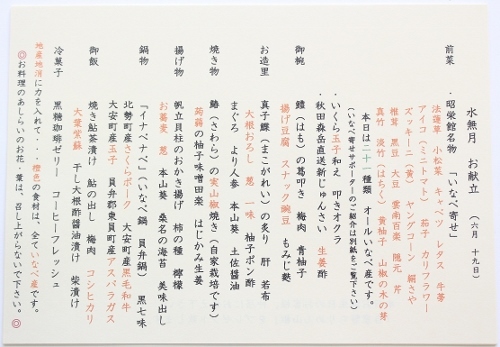 水無月 お献立 (六月 十九日)
前菜
・昭栄館名物 「いなべ寄せ」
法蓮草 小松菜 キャベツ レタス 牛蒡
アイコ(ミニトマト) 茄子 カリフラワー
ズッキーニ(黄) ヤングコーン 絹さや
椎茸 黒豆 大豆 雲南百楽 隠元 芹
真竹 淡竹(はちく) 黄柚子 山椒の木の芽
本日は二十一種類 オールいなべ産です。
(いなべ寄せサポーターのご紹介は別紙をご覧下さい)
・いくら玉子和え 叩きオクラ
・秋田森岳直送新じゅんさい 生姜酢
御椀
鱧(はも)の葛叩き 梅肉 青柚子
揚げ豆腐 スナック豌豆 もみじ麩
お造里
真子鰈(まこがれい)の炙り 肝 若布
大根おろし 葱 一味 柚子ポン酢
まぐろ より人参 本山葵 土佐醤油
焼き物
鰆(さわら)の実山椒焼き(自家栽培です)
蒟蒻の柚子味噌田楽 はじかみ生姜
揚げ物
帆立貝柱のおかき揚げ 柿の種 檸檬
お蕎麦 葱 本山葵 桑名の海苔 美味出し
鍋物
「イナベナベ」(いなべ鍋 員弁鍋) 黒七味
北勢町産さくらポーク 大安町産黒毛和牛
大安町産玉子 員弁郡東員町産アスパラガス
御飯
焼き鮎茶漬け 鮎の出し 梅肉 コシヒカリ
大葉紫蘇 干し大根酢醤油漬け 柴漬け
冷菓子
黒糖珈琲ゼリー コーヒーフレッシュ
地産地消に力を入れて・・橙色の食材は、全ていなべ産です。
◎お料理のあしらいのお花・葉は、召し上がらないで下さい。◎